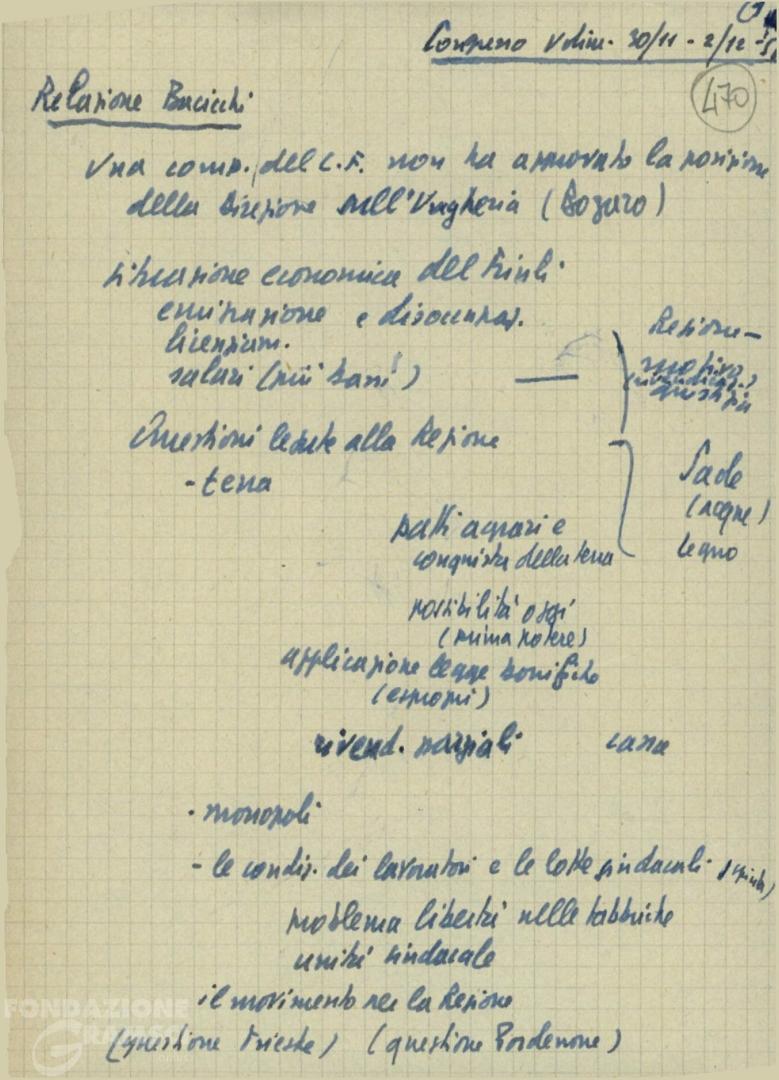 Congresso Udine. 30/11 - 2/12
470
Relazione Bacicchi
Una comp. del C.F. non ha approvato la posizione
della Direzione sull'Ungheria (Bozaro)
situazione economica del Friuli.
emigrazione e disoccupaz.
licenziam.
salari (più bassi)
Regione -
Questioni legate alla Regione
- terra
Sade
(acque)
legno
patti agrari e
conquista della terra
possibilità oggi
(prima potere)
applicazione legge bonifiche
(espropri)
rivend. parziali
- monopoli
- le condiz. dei lavoratori e le lotte sindacali
problema libertà nelle fabbriche
unità sindacale
il movimento per la Regione
(questione Trieste) (questione Pordenone)
FONDAZIONE
GRAMSCI